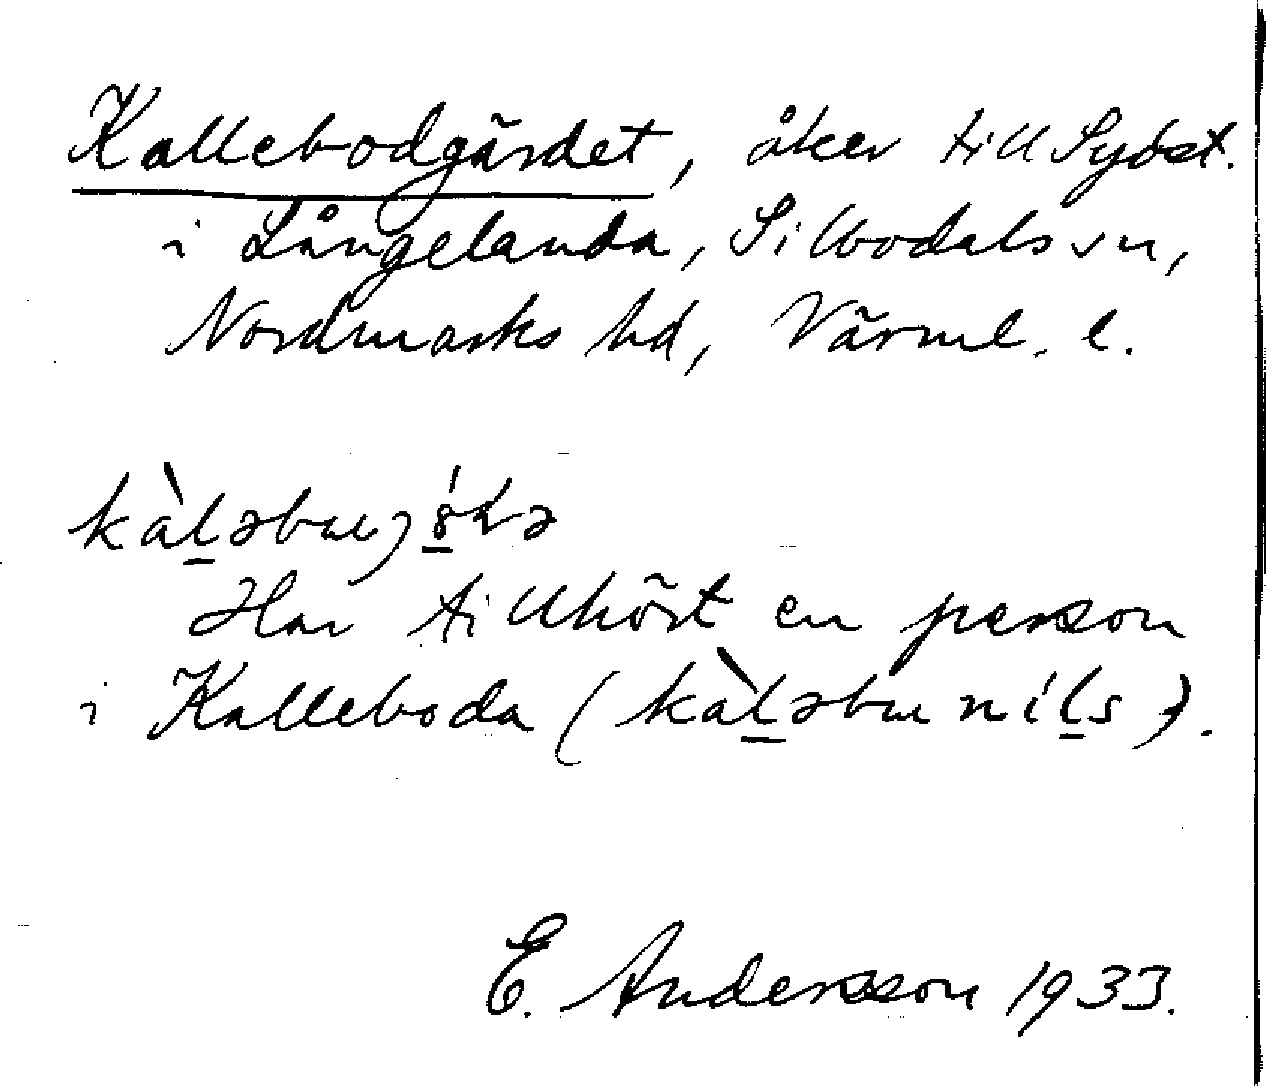 Kallebodgärdet, åker till Sydöst.
i Långelanda, Sillbodals sn,
Nordmarks hd, Värml. l.
Har tillhört en person
i Kalleboda (kàl̲əbu níl̲s).
E. Andersson 1933.